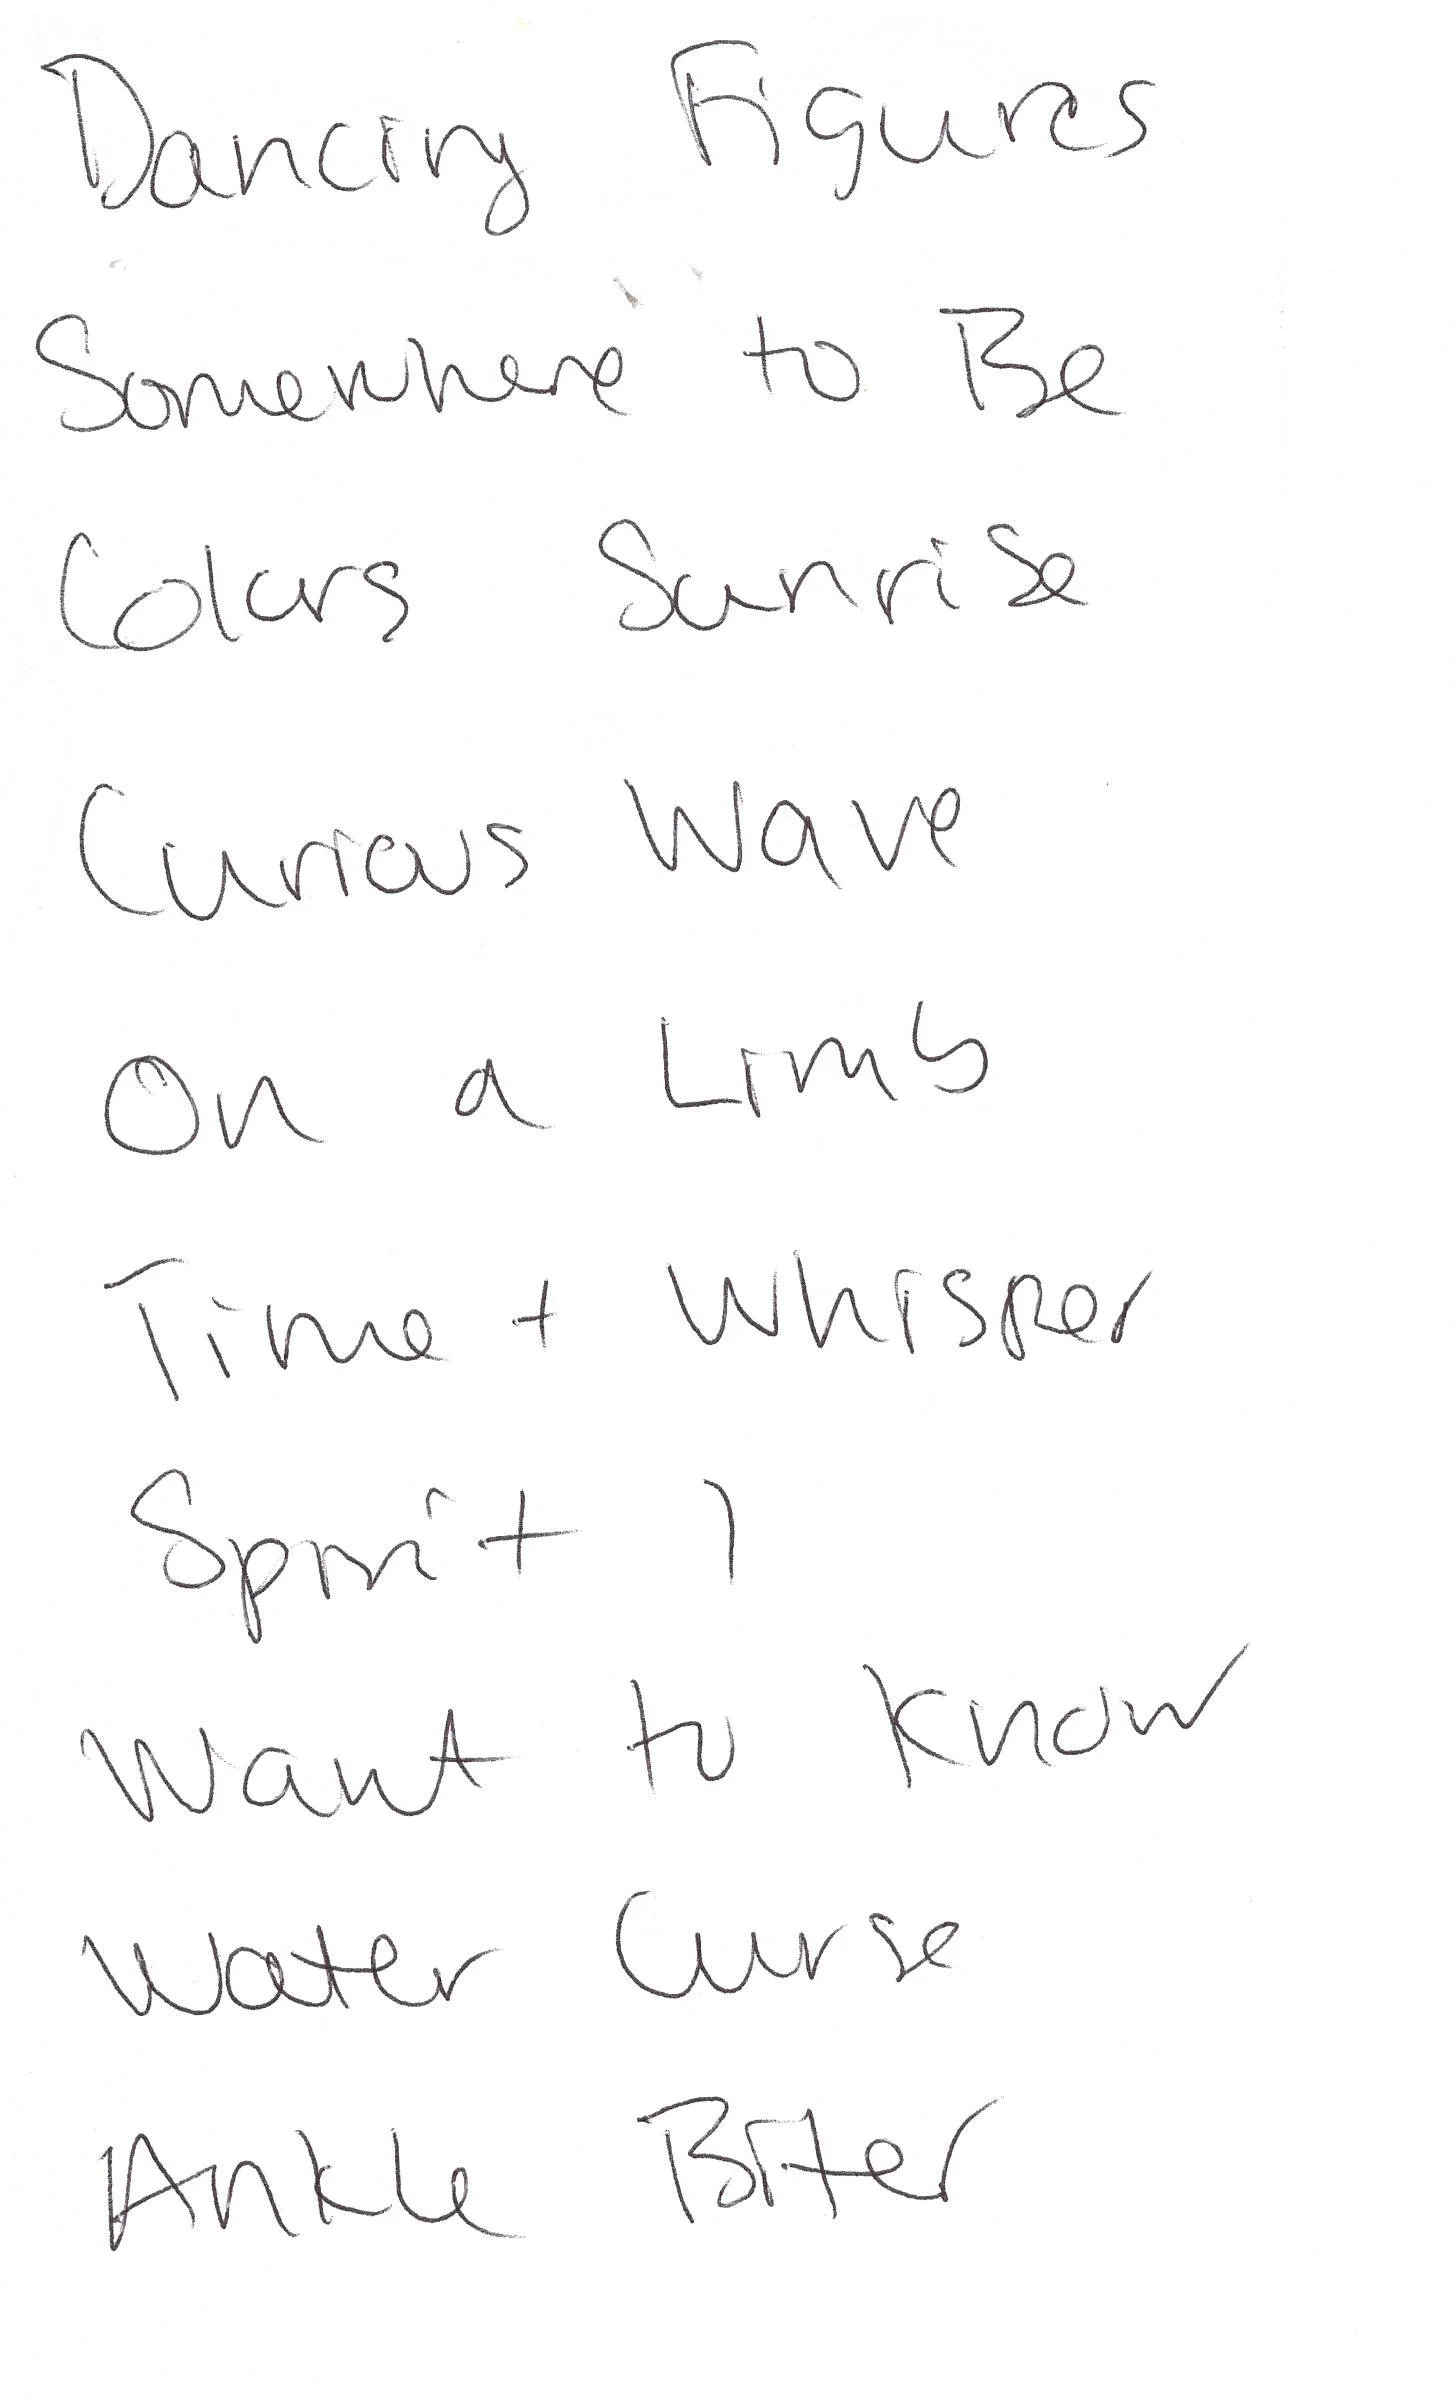 Dancing Figures
Somewhere to Be
Colors Sunrise
Curious Wave
On a Limb
Time + Whisper
Spirit 1
Want to Know
Water Curse
Ankle Biter